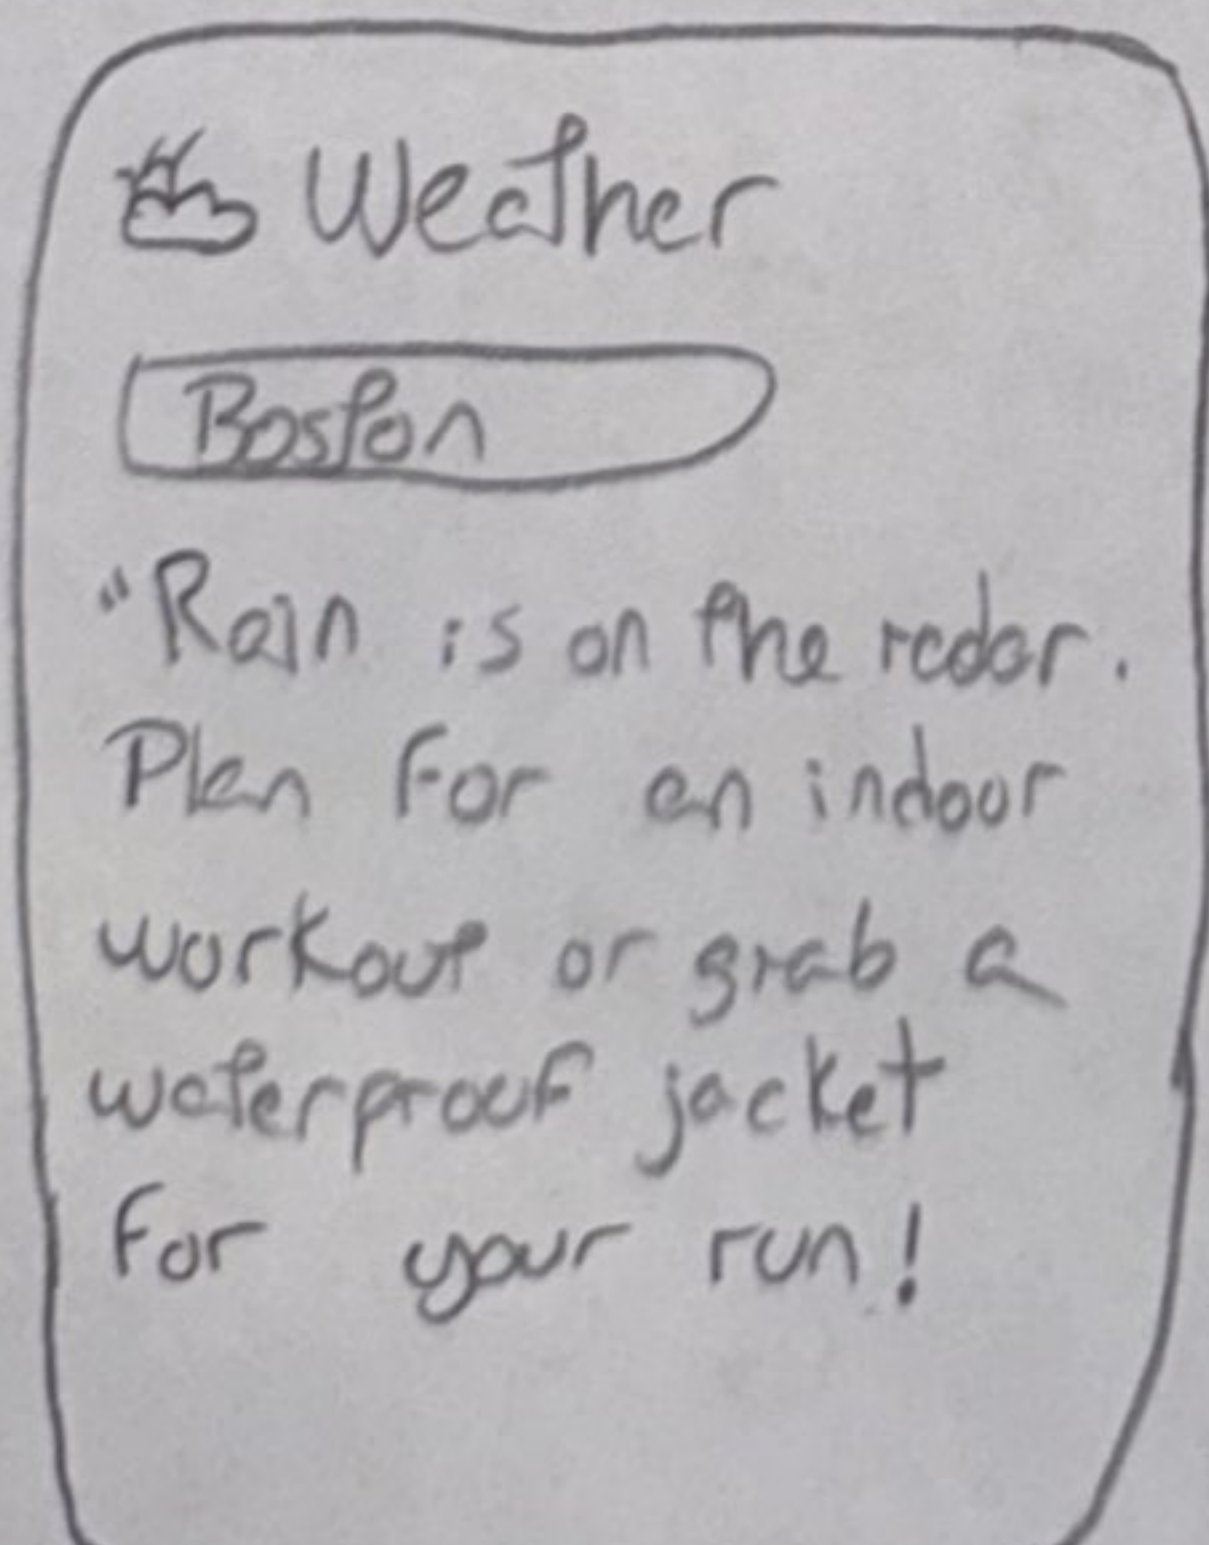 Weather
Boston
"Rain is on the radar.
Plan for an indoor
workout or grab a
waterproof jacket
for your run!